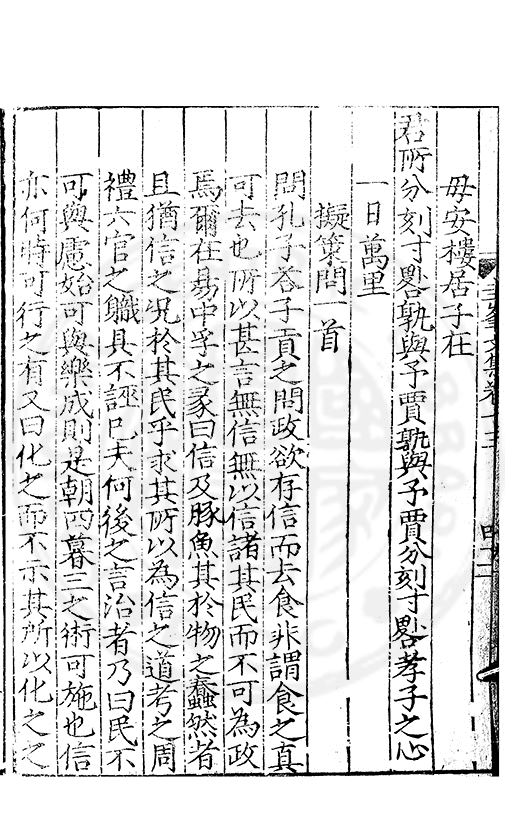 毋安樓居子在
君所分刻寸晷孰與予賈孰與予賈分刻寸晷孝子之心
一日萬里
擬策問一首
問孔子荅子貢之問政欲存信而去食非謂食之真
可去也所以甚言無信無以信諸其民而不可為政
焉爾在昜中孚之彖曰信及豚魚其於物之蠢然者
且猶信之况於其民乎求其所以為信之道考之周
禮六官之職具不誣已夫何後之言治者乃曰民不
可與慮始可與樂成則是朝四暮三之術可施也信
亦何時可行之有又曰化之而不示其所以化之之
文集卷十三